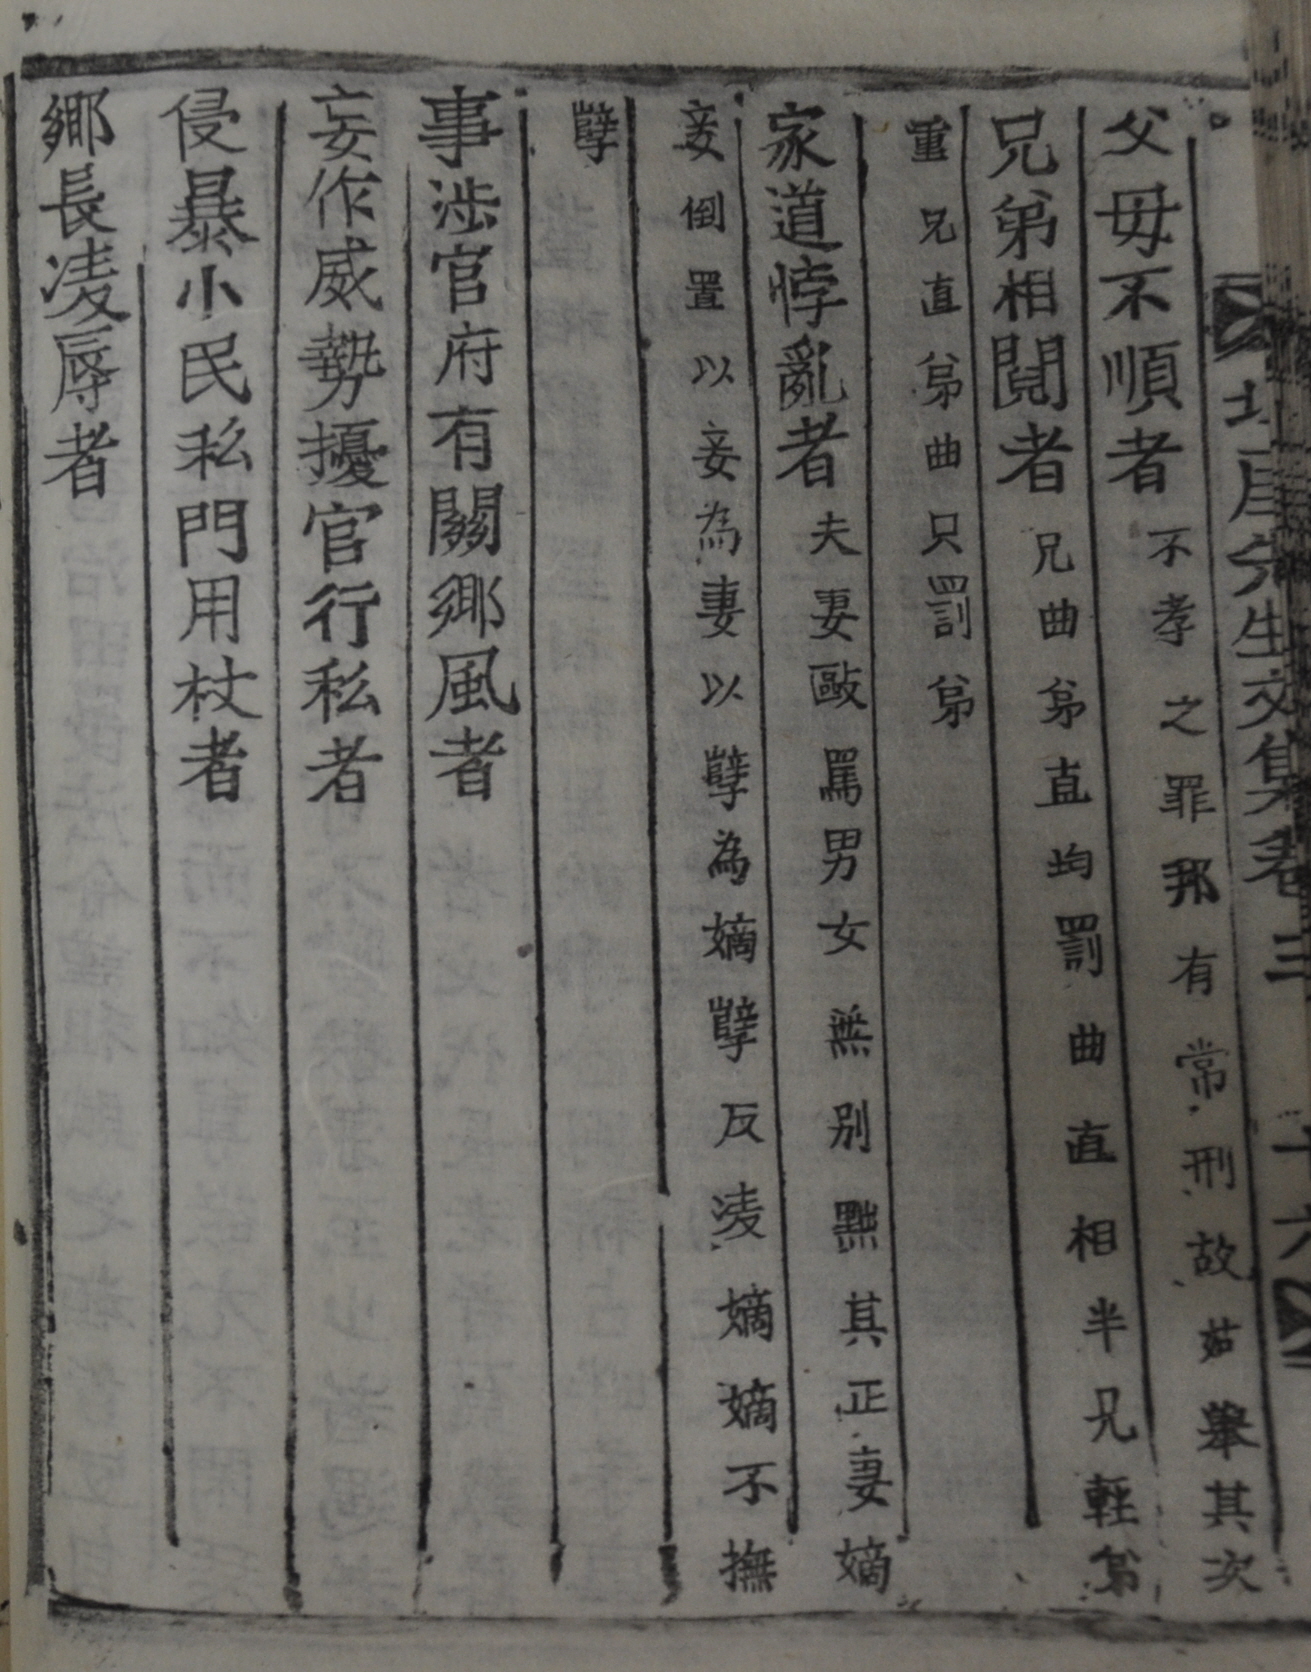 父母不順者不孝之罪邦有常刑故茹擧其次
兄弟相鬩者兄曲弟直均罰曲直相半兄輕弟
重兄直弟曲只罰弟
家道悖亂者夫妻毆罵男女無別黜其正妻嫡
妾倒置以妾為妻以孽為嫡孽反凌嫡嫡不撫
孽
事涉官府有關鄉風者
妄作威勢擾官行私者
侵暴小民私門用杖者
鄉長凌辱者
先生文集卷三
十六